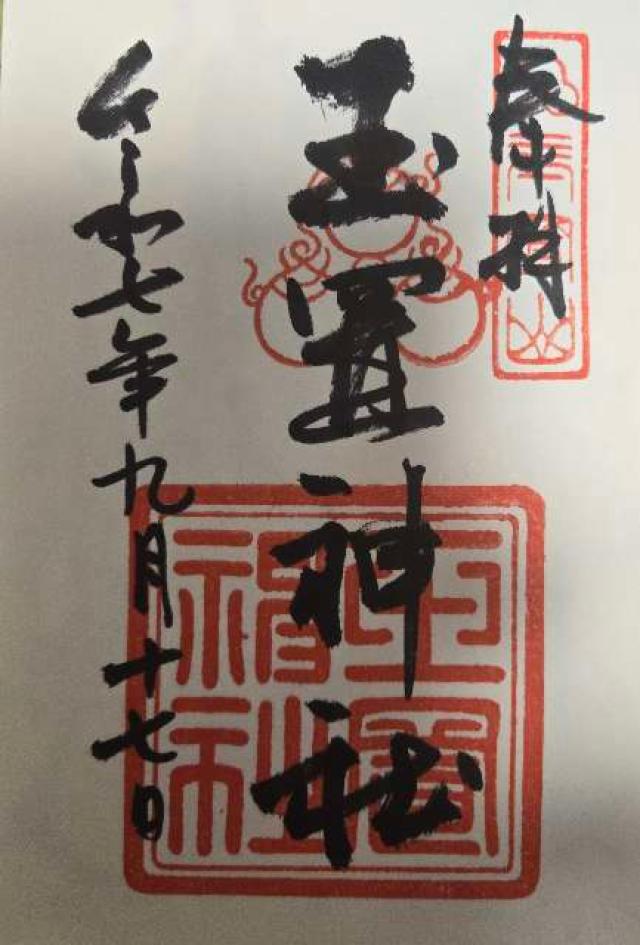 奉拝
玉置神社
令和七年九月十七日
玉置
神社